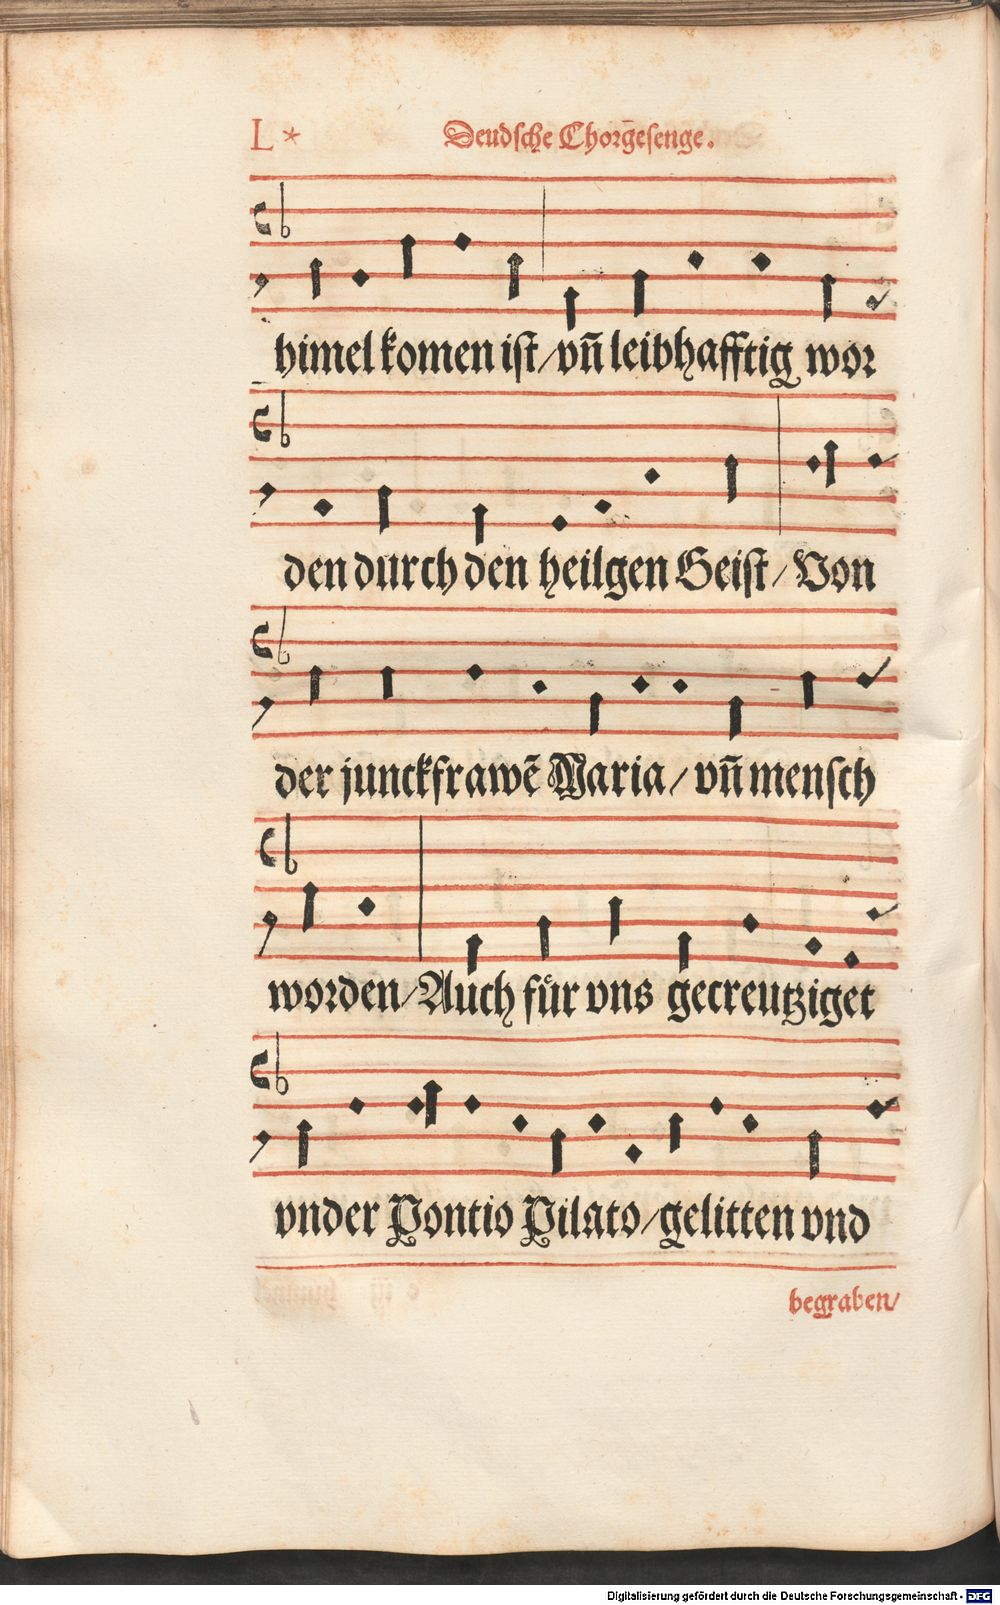 L *
Deudsche Chorgesenge.
himel komen ist/vn̄ leibhafftig wor
den durch den heilgen Geist/Von
der junckfrawẽ Maria/vn̄ mensch
worden/Auch für vns gecreutziget
vnder Pontio Pilato/gelitten vnd
begraben/
Digitalisierung gefördert durch die Deutsche Forschungsgemeinschaft - DFG